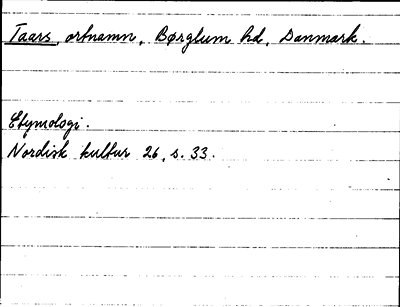 Taars, ortnamn, Børglum hd, Danmark.
Etymologi.
Nordisk kultur 26, s. 33.